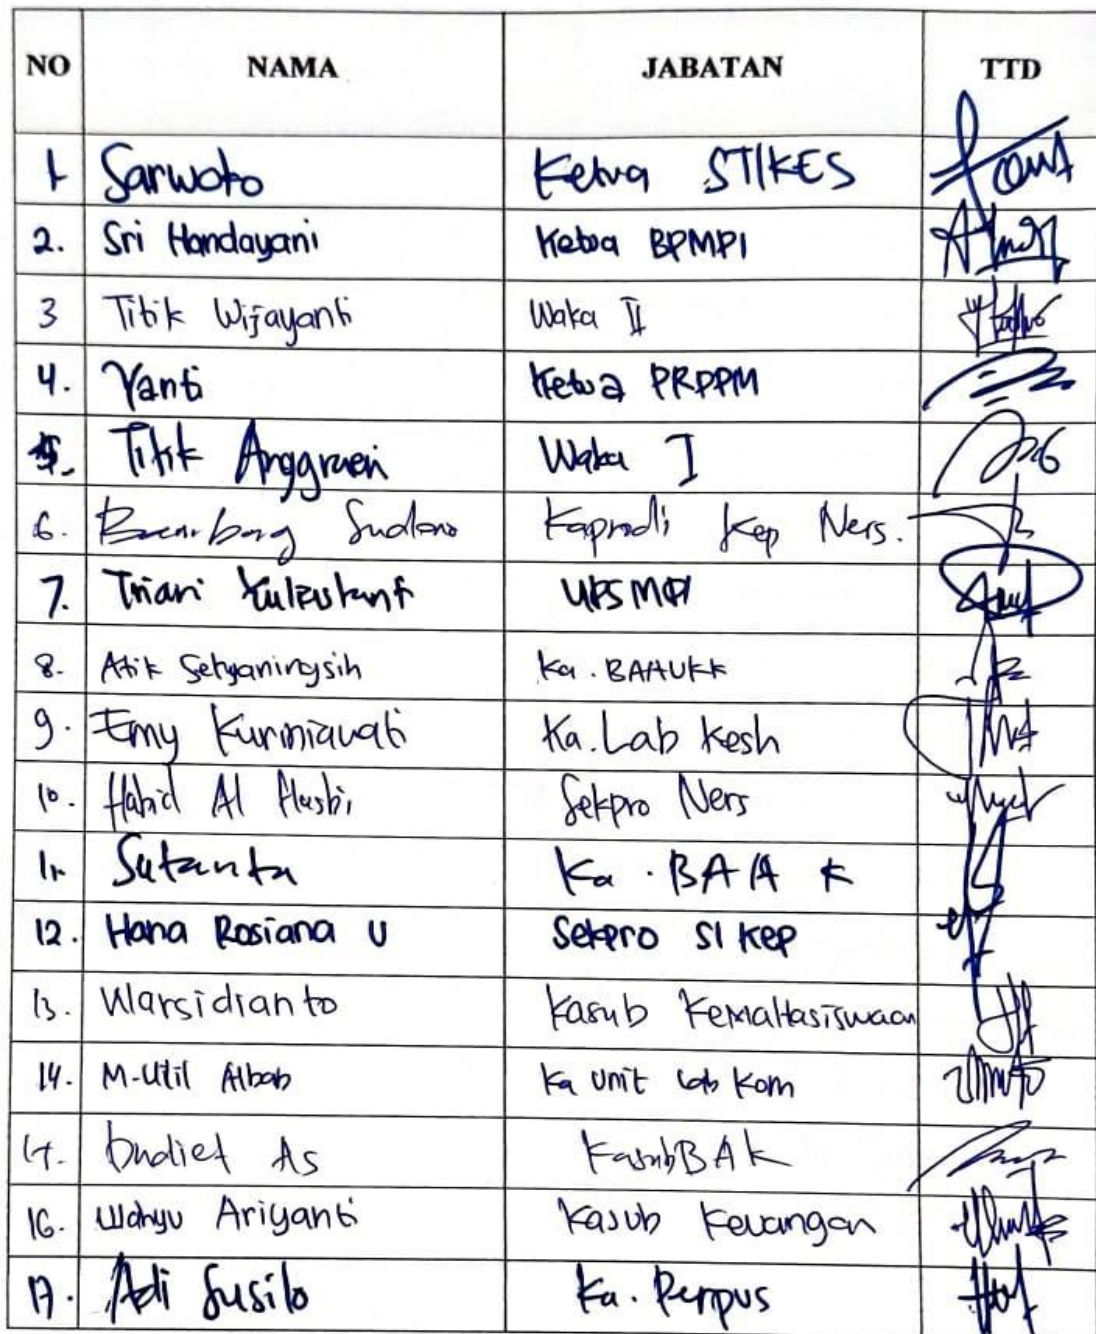 NO NAMA JABATAN TTD
1 Sarwoto Ketua STIKES
2. Sri Handayani Ketua BPMPI
3 Titik Wijayanti Waka II
4. Yanti Ketua PRPPM
5. Titik Anggraeni Waka I
6. Bambang Sudono Kaprodi Kep Ners.
7. Triani UPSMPI
8. Atik Setyaningsih Ka. BAAUKK
9. Emy Kurniawati Ka. Lab Kesh
10. Habid Al Hasbi Sekpro Ners
11 Sutanta Ka. BAAK
12. Hana Rosiana U Sekpro S1 Kep
13. Warsidianto Kasub Kemahasiswaan
14. M. Ulil Albab Ka Unit Lab Kom
As Kasub BAK
16. Wahyu Ariyanti Kasub Keuangan
17. Adi Susilo Ka. Perpus